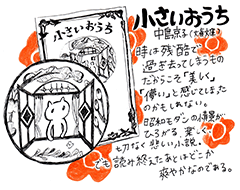 小さいおうち
小さいおうち
中島京子(文春文庫)
時は残酷で
過ぎ去ってしまうもの
だからこそ「美しく」
「儚い」と感じてしまう
のかもしれない。
昭和モダンの情景が
ひろがる、楽しく
も切なく悲しい小説。
でも読み終えたあとはどこか
爽やかなのである。